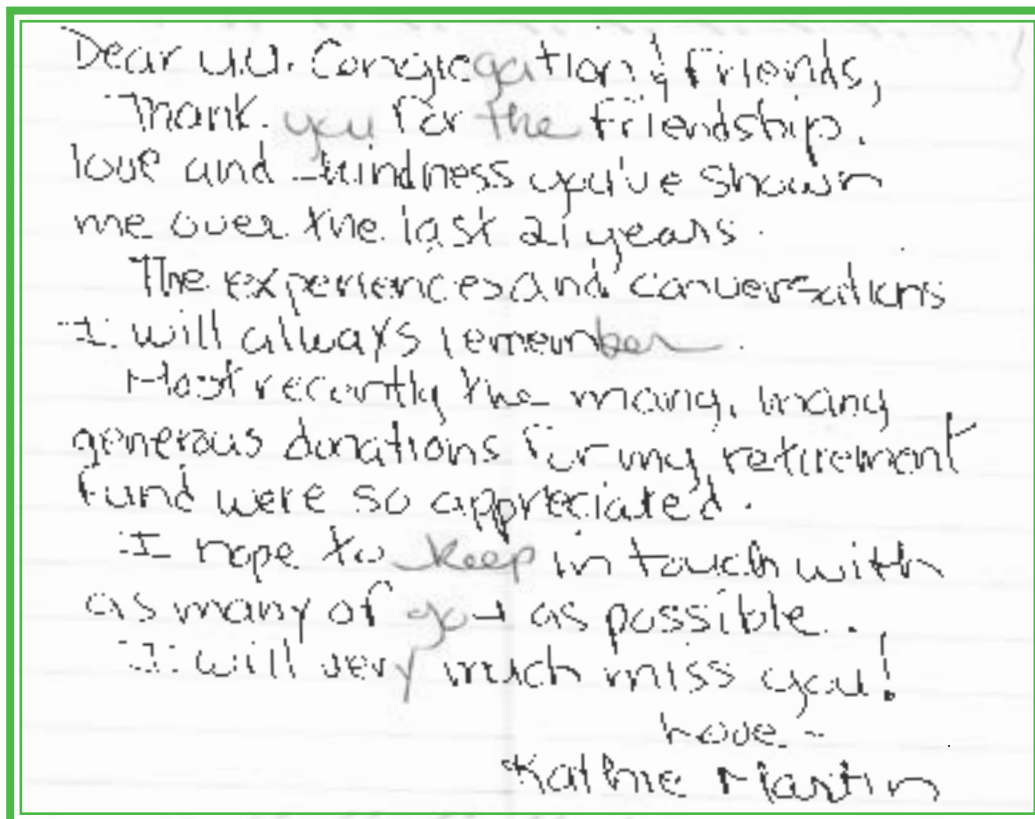 Dear U.U. Congregation & Friends,
Thank you for the friendship,
love and kindness you've shown
me over the last 21 years.
The experiences and conversations
I will always remember.
Most recently the many, many
generous donations for my retirement
fund were so appreciated.
I hope to keep in touch with
as many of you as possible.
I will very much miss you!
Love -
Kathie Martin